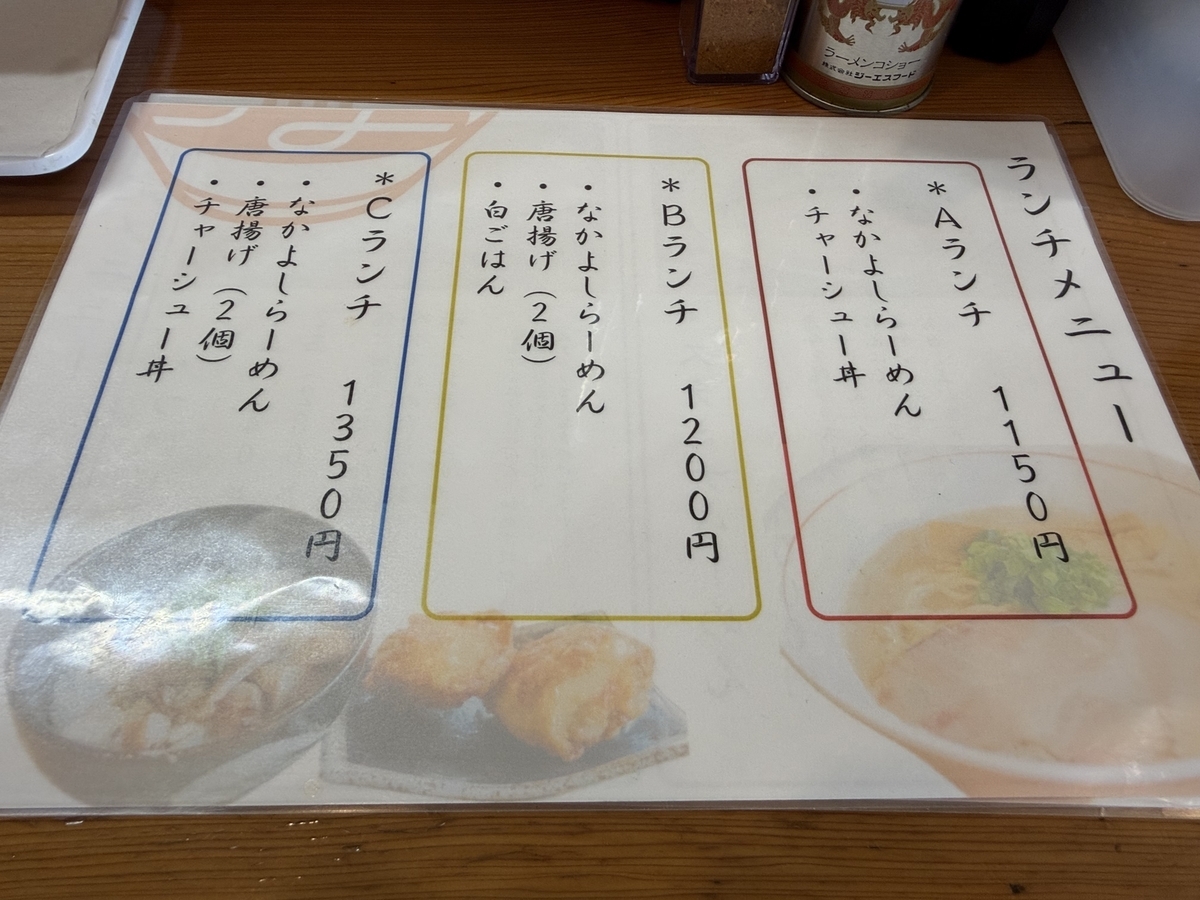 ランチメニュー
*Aランチ 1150円
・なかよしらーめん
・チャーシュー丼
*Bランチ 1200円
・なかよしらーめん
・唐揚げ(2個)
・白ごはん
*Cランチ 1350円
・なかよしらーめん
・唐揚げ(2個)
・チャーシュー丼
ラーメンコショー
株式会社 ジーエスフード